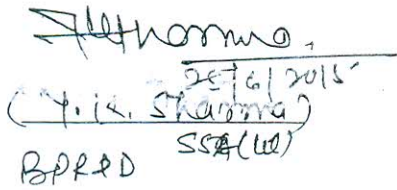 25/6/2015
(Y.K. Sharma)
SSA(W)
BPR&D